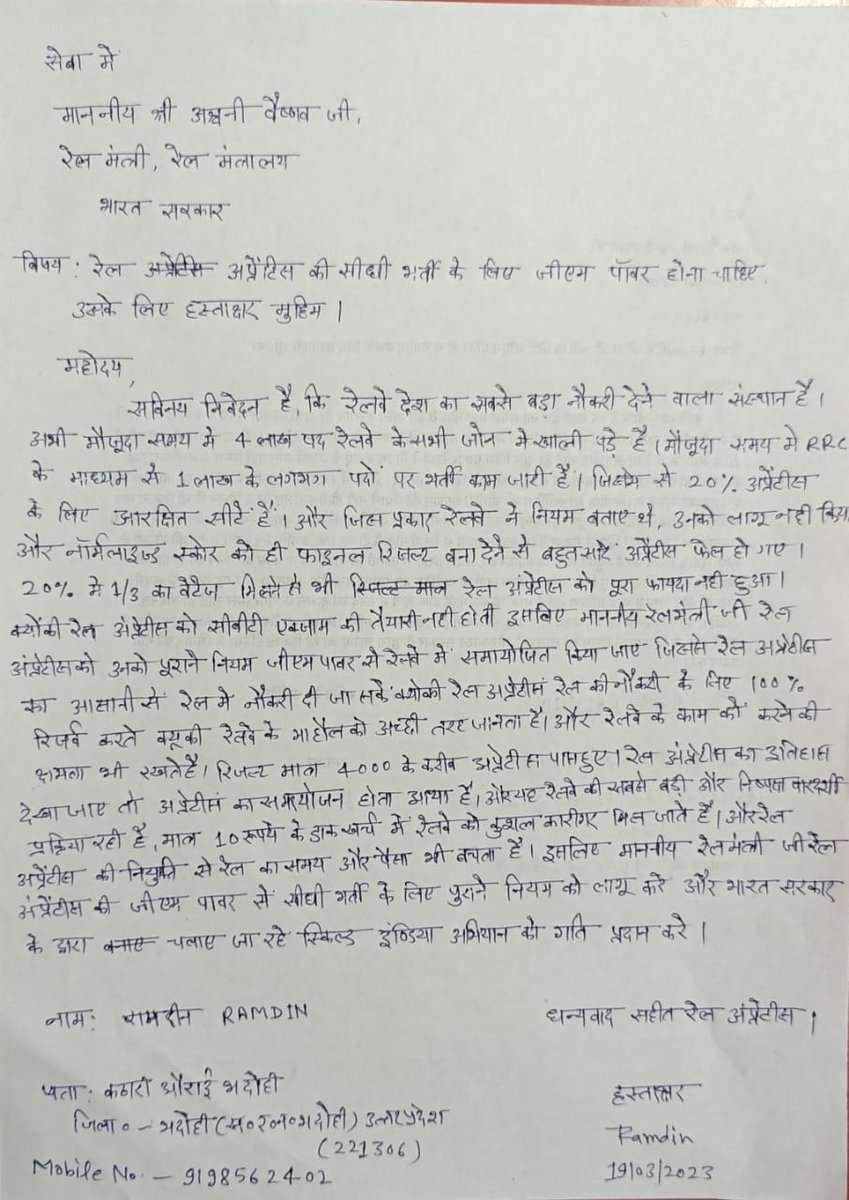 सेवा में
माननीय श्री अश्वनी वैष्णव जी,
रेल मंत्री, रेल मंत्रालय
भारत सरकार
विषय : रेल अप्रेंटिस की सीधी भर्ती के लिए जीएम पॉवर होना चाहिए,
उसके लिए हस्ताक्षर मुहिम ।
महोदय,
सविनय निवेदन है, कि रेलवे देश का सबसे बड़ा नौकरी देने वाला संस्थान है ।
अभी मौजूदा समय मे 4 लाख पद रेलवे के सभी जोन मे खाली पड़े है । मौजूदा समय मे RRC
के माध्यम से 1 लाख के लगभग पदो पर भर्ती काम जारी है । जिसमे से 20% अप्रेंटीस
के लिए आरक्षित सीटें है । और जिस प्रकार रेलवे ने नियम बताए थे, उनको लागू नही किया
और नॉर्मलाइज्ड स्कोर को ही फाइनल रिजल्ट बना देने से बहुत सारे अप्रेंटीस फेल हो गए ।
20% मे 1/3 का वेटेज मिलने से भी रेल अप्रेंटीस को पूरा फायदा नही हुआ ।
क्योंकी रेल अंप्रेटीस को सीबीटी एक्जाम की तैयारी नही होती इसलिए माननीय रेलमंत्री जी रेल
अंप्रेटीस को उनको पूराने नियम जीएम पावर से रेलवे में समायोजित किया जाए जिससे रेल अप्रेटीस
का आसानी से रेल मे नौकरी दी जा सके क्योकी रेल अप्रेटीस रेल की नौकरी के लिए 100%
रिजर्व करते क्यूकी रेलवे के माहौल को अच्छी तरह जानता है । और रेलवे के काम को करने की
क्षमता भी रखते है । रिजल्ट मात्र 4000 के करीब अप्रेटीस पास हुए । रेल अंप्रेटीस का इतिहास
देखा जाए तो अप्रेटीस का समायोजन होता आया है । और यह रेलवे की सबसे बड़ी और निष्पक्ष पारदर्शी
प्रक्रिया रही है, मात्र 10 रूपये के डाक खर्च में रेलवे को कुशल कारीगर मिल जाते है । और रेल
अप्रेंटीस की नियुक्ति से रेल का समय और पैसा भी बचता है । इसलिए माननीय रेलमंत्री जी रेल
अंप्रेंटीस की जीएम पावर से सीधी भर्ती के लिए पुराने नियम को लागू करे और भारत सरकार
के द्वारा चलाए जा रहे स्किल्ड इण्डिया अभियान को गति प्रदान करे ।
नाम: रामदीन RAMDIN
धन्यवाद सहीत रेल अंप्रेटीस ।
पता: औराई भदोही
जिला ० – भदोही (स०र०न०भदोही) उत्तर प्रदेश
(221306)
Mobile No. – 9198562402
हस्ताक्षर
Ramdin
19/03/2023